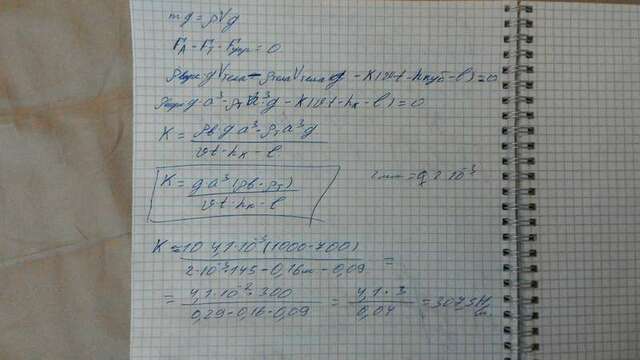 mg = ρVg
F_A - F_T - F_упр = 0
ρ_воды·g·V_тела - ρ_тела·V_тела·g - K(vt - h_куб - l) = 0
ρ_воды·g·a³ - ρ_T·a³·g - K(vt - h_к - l) = 0
K = (ρ_в·g·a³ - ρ_T·a³·g) / (vt - h_к - l)
K = g·a³(ρ_в - ρ_T) / (vt - h_к - l)
2 мм = 0,2·10⁻³
K = 10·4,1·10⁻³(1000-700) / (2·10⁻³·145 - 0,16м - 0,09) =
= 4,1·10⁻²·300 / (0,29 - 0,16 - 0,09) = 4,1·3 / 0,04 = 307,5 Н/м